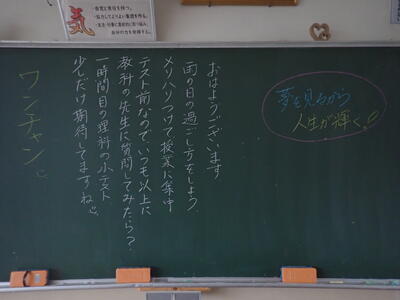 ・自覚と責任を持つ。
・協力してよりよい集団を作る。
気
おはようございます
雨の日の過ごし方をしよう。
メリハリつけて授業に集中
テスト前なので、いつも以上に
教科の先生に質問してみたら？
一時間目の理科の小テスト
少しだけ期待してますね
ワンチャン
夢を見るから
人生が輝く!!